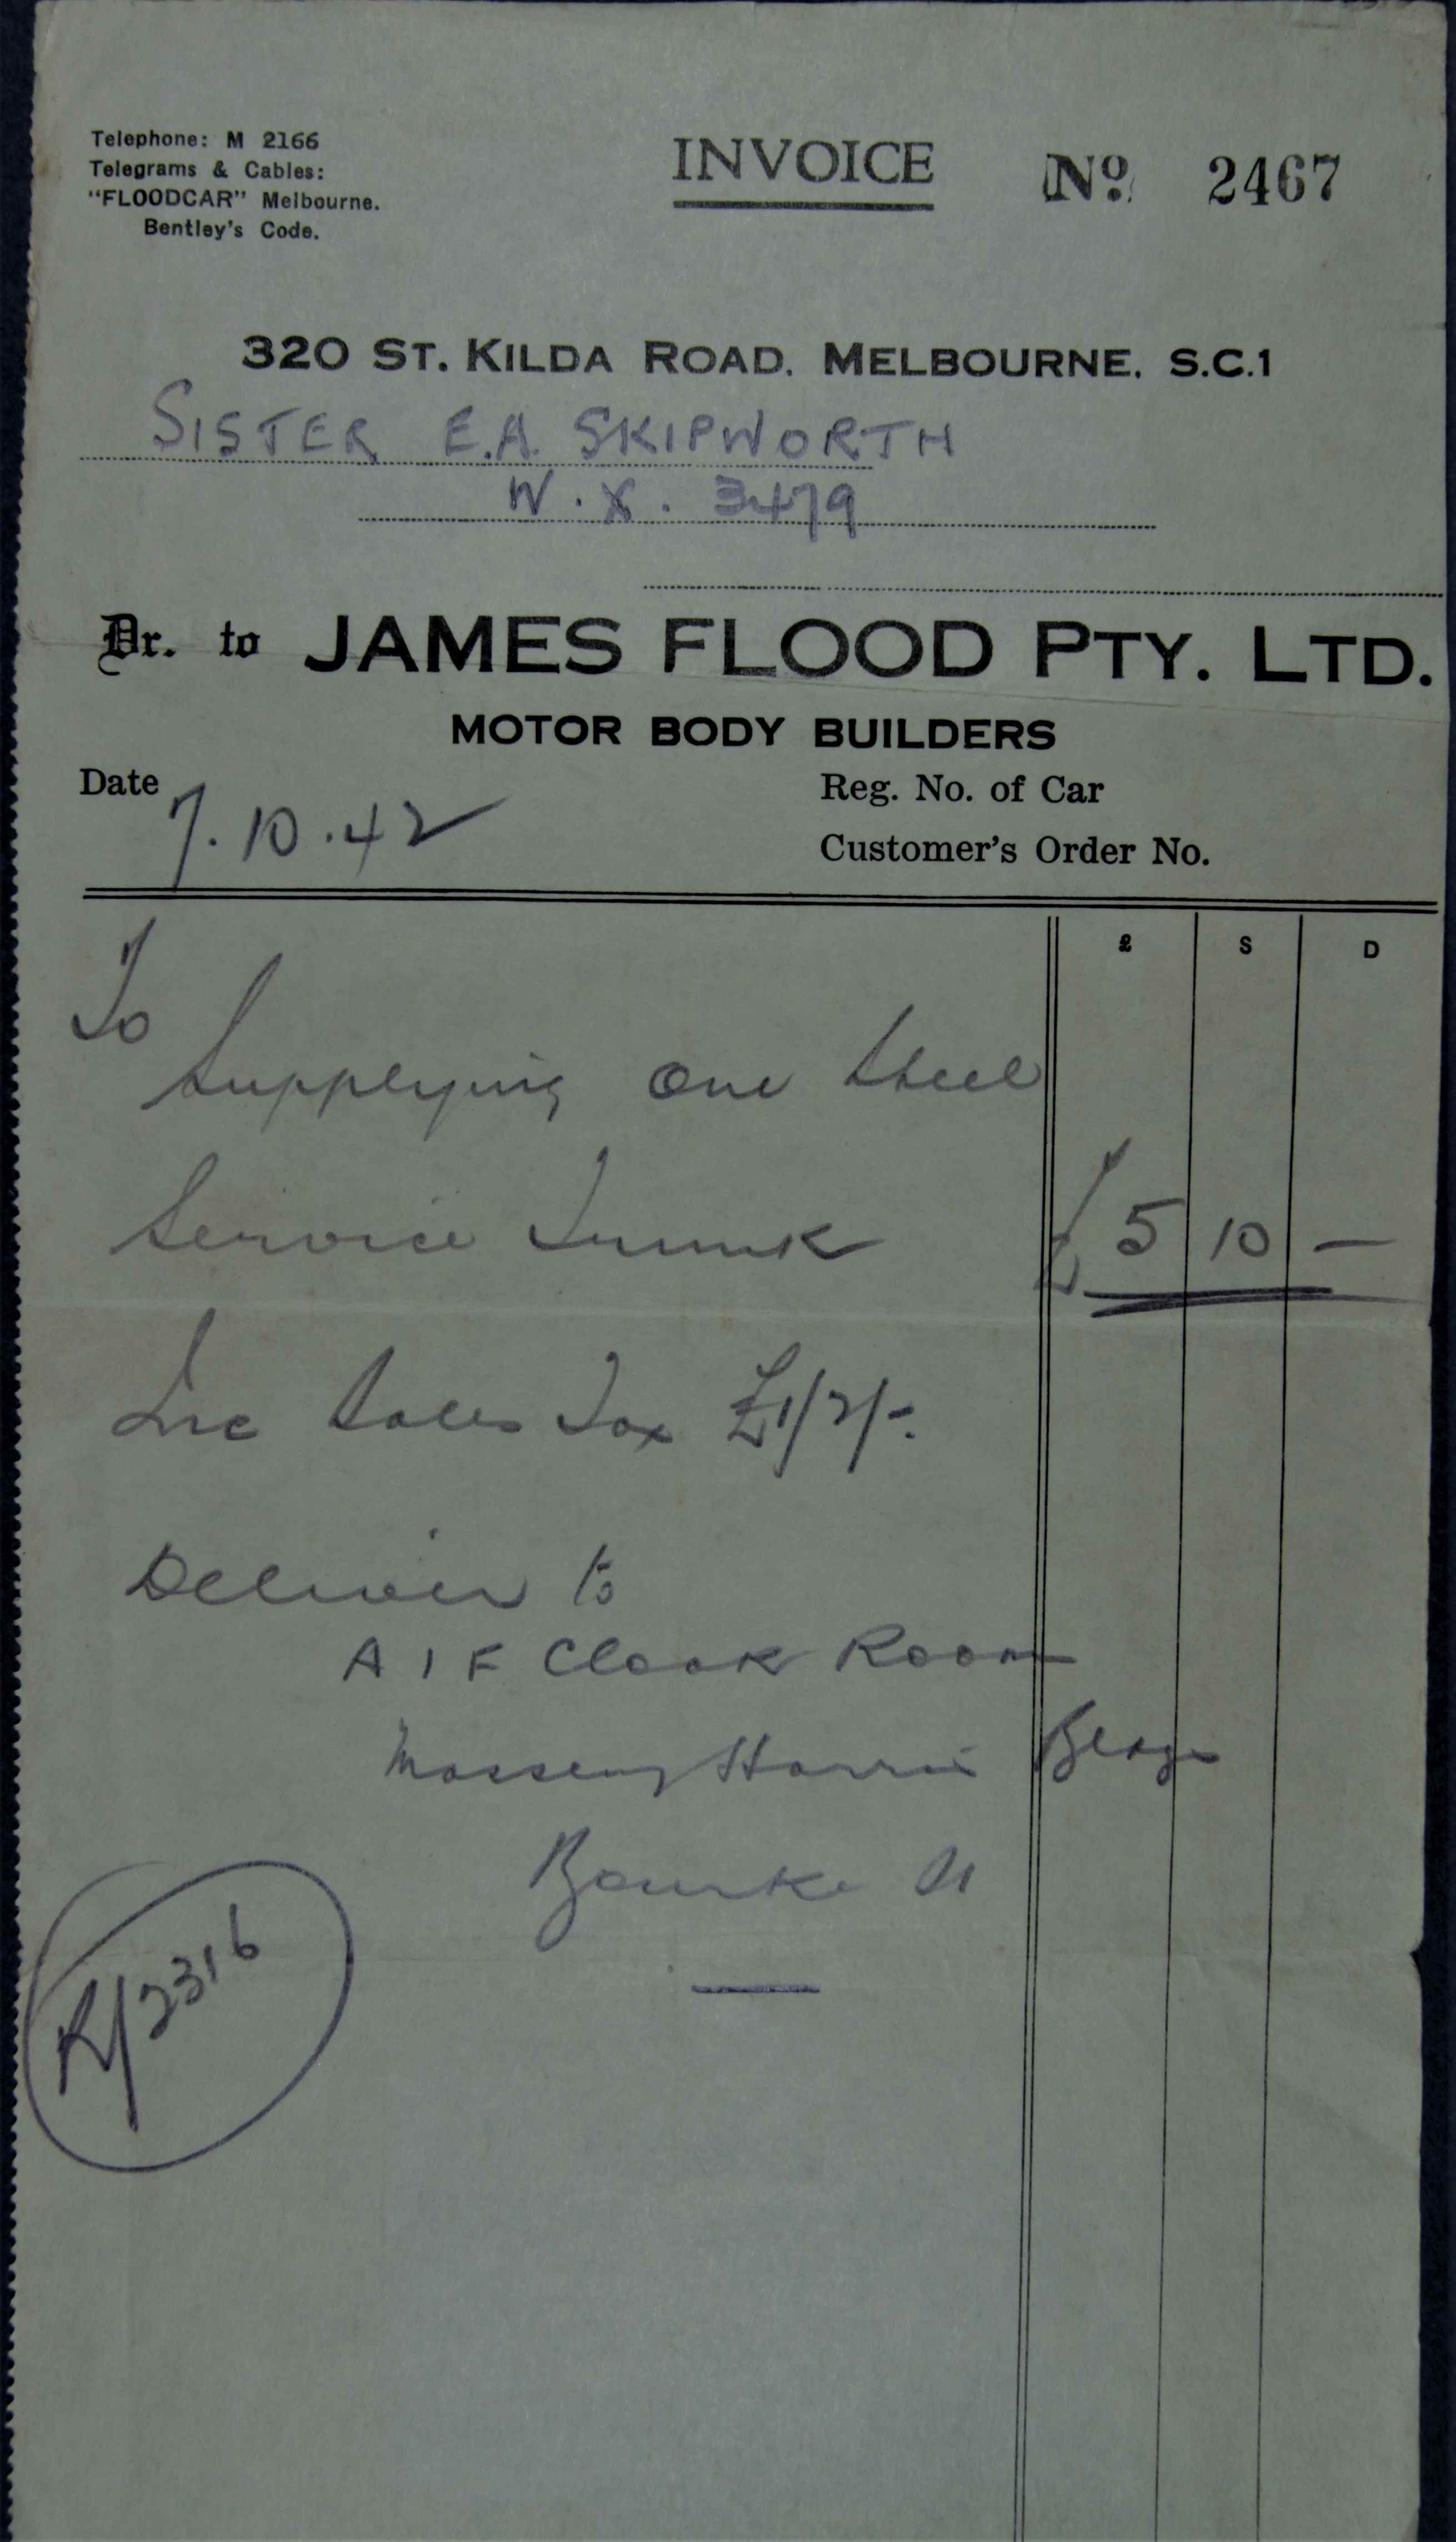 Telephone: M 2166
Telegrams & Cables:
"FLOODCAR" Melbourne.
Bentley's Code.
INVOICE
No. 2467
320 ST. KILDA ROAD, MELBOURNE. S.C.1
SISTER E.A. SKIPWORTH
W.X. 3479
Dr. to JAMES FLOOD PTY. LTD.
MOTOR BODY BUILDERS
Date 7.10.42
Reg. No. of Car
Customer's Order No.
£ S D
To
Supplying one Steel
Service Trunk £ 5 10 —
Inc Sales Tax £1/2/-.
Deliver to
A I F Cloak Room
Massey Harris Bldgs
Bourke St
R/2316